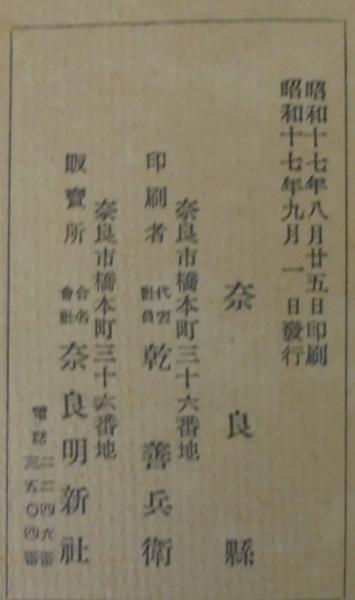 昭和十七年八月廿五日印刷
昭和十七年九月一日發行
奈良縣
奈良市橋本町三十六番地
印刷者 代表社員 乾善兵衛
奈良市橋本町三十六番地
販賣所 合名會社 奈良明新社
電話 二二四六番
五〇四番